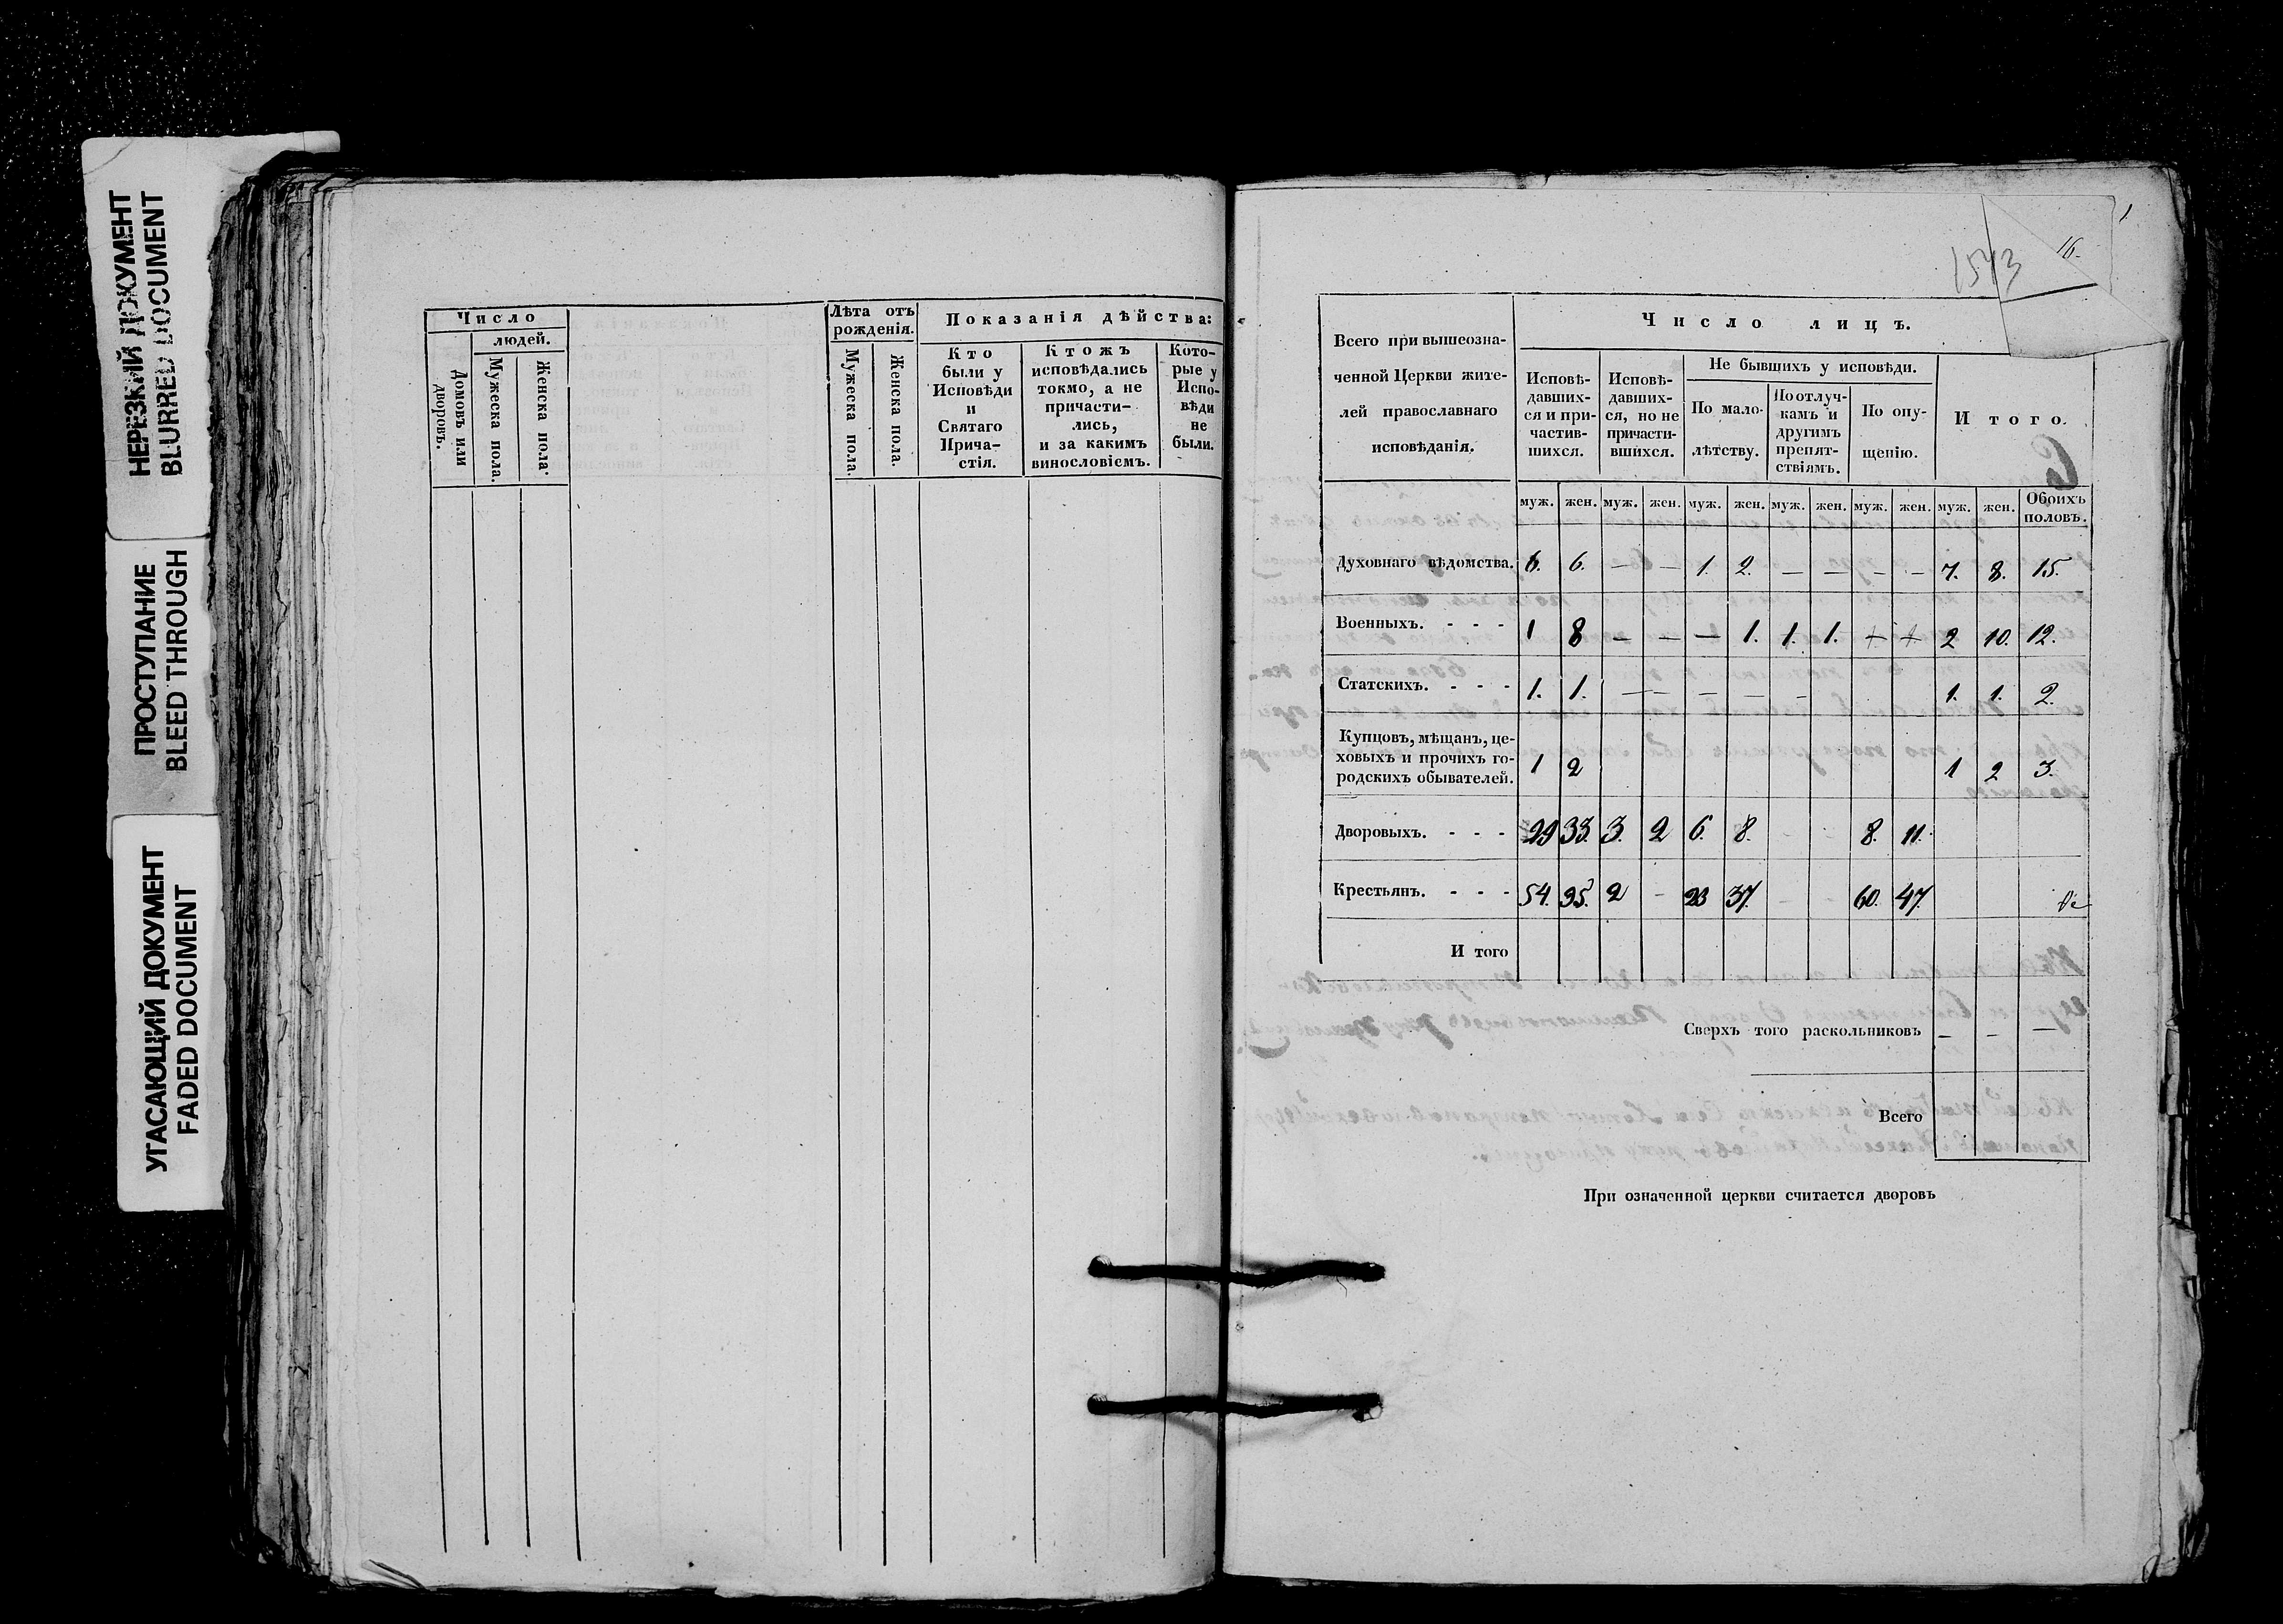 НЕРЕЗКИЙ ДОКУМЕНТ
BLURRED DOCUMENT
ПРОСТУПАНИЕ
BLEED THROUGH
УГАСАЮЩИЙ ДОКУМЕНТ
FADED DOCUMENT
Число
людей.
Домовъ или дворовъ.
Мужеска пола.
Женска пола.
Лѣта отъ
рожденія.
Мужеска пола.
Женска пола.
Показанія дѣйства:
Кто
были у
Исповѣди
и
Святаго
Прича-
стія.
Ктожъ
исповѣдались
токмо, а не
причасти-
лись,
и за какимъ
винословіемъ.
Кото-
рые у
Испо-
вѣди
не
были.
1543
16.
Всего при вышеозна-
ченной Церкви жите-
лей православнаго
исповѣданія.
Число лицъ.
Исповѣ-
давших-
ся и при-
частив-
шихся.
Исповѣ-
давших-
ся, но не
причасти-
вшихся.
Не бывшихъ у исповѣди.
По мало-
лѣтству.
По отлуч-
камъ и
другимъ
препят-
ствіямъ.
По опу-
щенію.
Итого.
муж. жен. муж. жен. муж. жен. муж. жен. муж. жен. муж. жен. Обоихъ половъ.
Духовнаго вѣдомства. 6. 6. — — 1. 2. — — — — 7. 8. 15.
Военныхъ. - - - 1 8 — — — 1. 1. 1. + + 2 10. 12.
Статскихъ. - - - 1. 1. — — — — - 1. 1. 2.
Купцовъ, мѣщанъ, це-
ховыхъ и прочихъ го-
родскихъ обывателей. 1 2 1 2 3.
Дворовыхъ. - - - 29 33. 3. 2 6. 8. - - 8. 11.
Крестьянъ. - - - 54. 95. 2 - 23 37. - - 60. 47.
И того
Сверхъ того раскольниковъ — — —
Всего
При означенной церкви считается дворовъ